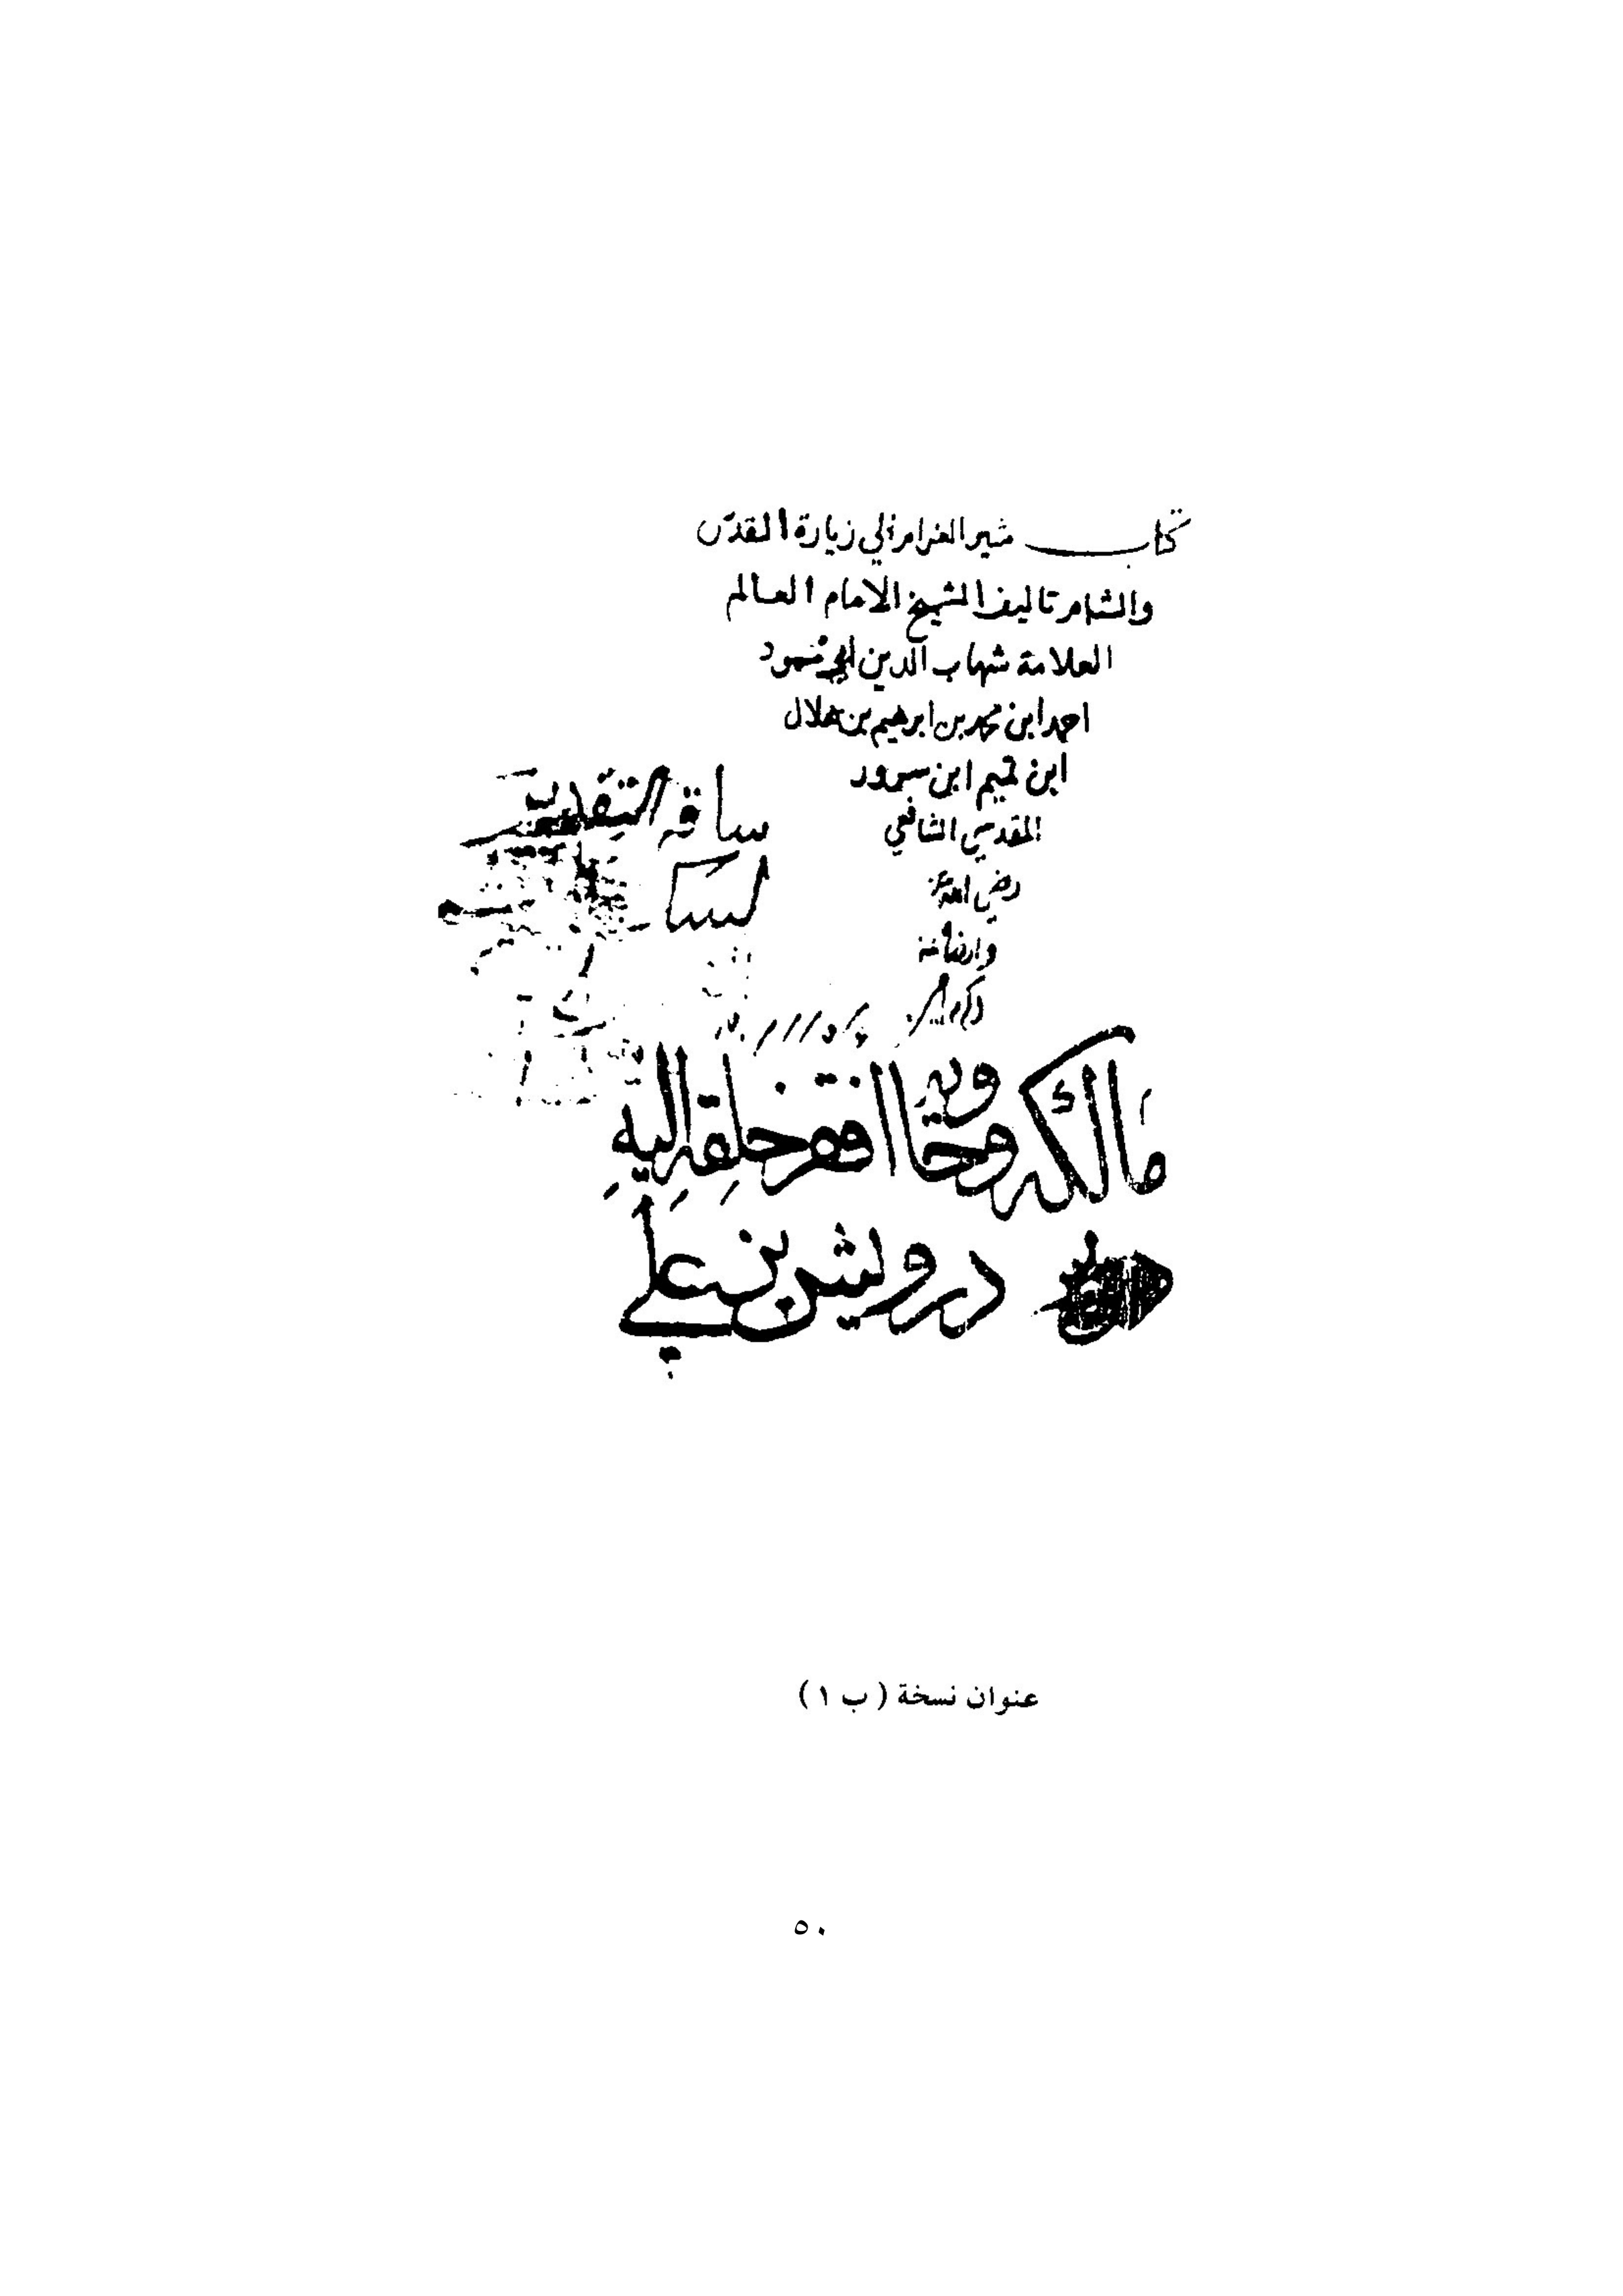 كتاب مثير الغرام الي زيارة القدس
والشام تاليف الشيخ الامام العالم
العلامة شهاب الدين ابي محمود
احمد ابن محمد بن ابرهيم بن هلال
ابن تميم ابن سرور
المقدسي الشافعي
رضي الله عنه
وارضاه
ساقه التقدير
مالكه وحا افقر خلقه اليه
درويش بن علي
عنوان نسخة (ب ١)
٥٠